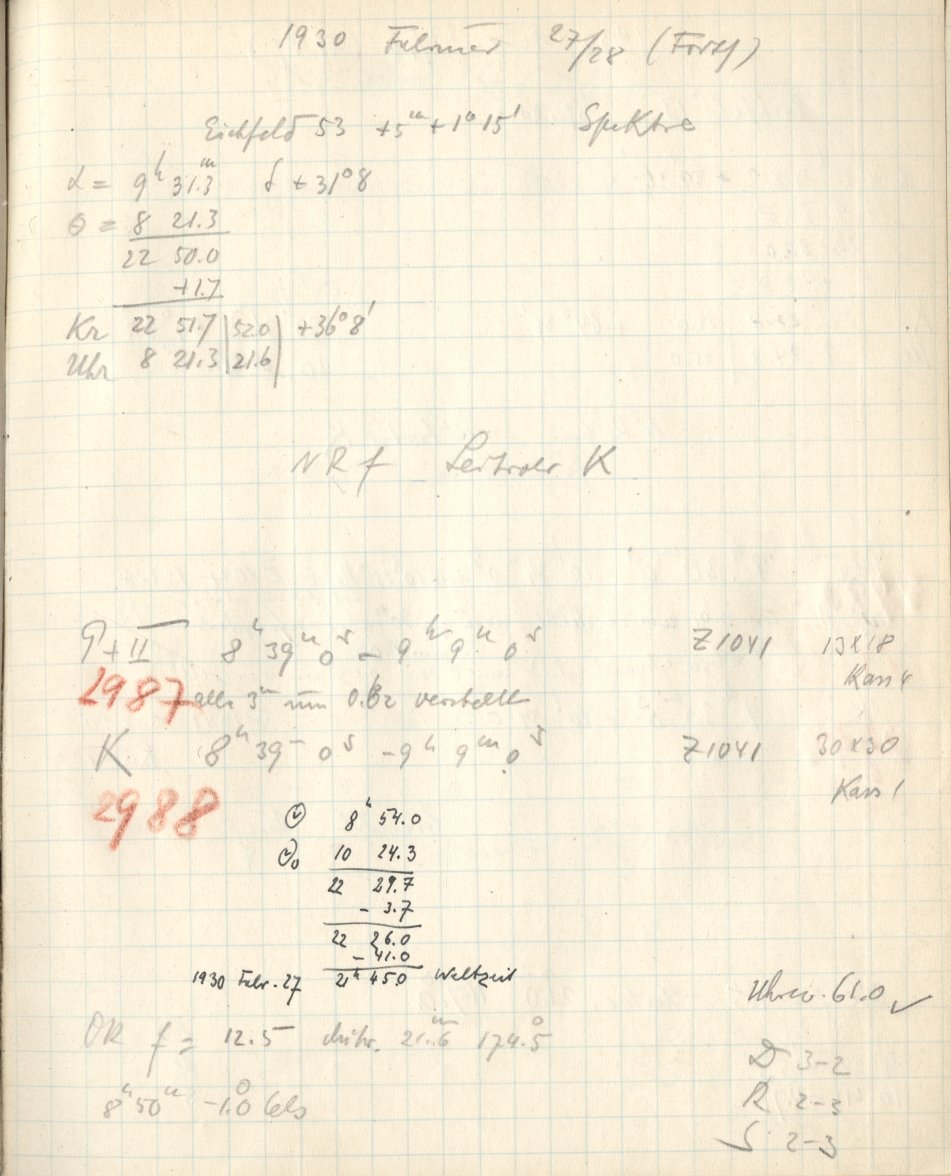 1930 Februar 27/28 (Forts)
Eichfeld 53 +5ᵐ +1° 15' Spektra
α = 9ʰ 31.3ᵐ δ + 31°8
θ = 8 21.3
22 50.0
+1.7
Kr 22 51.7 | 52.0 | +36°8'
Uhr 8 21.3 | 21.6 |
NR f Leitrohr K
P+II 8ʰ 39ᵐ 0ˢ – 9ʰ 9ᵐ 0ˢ Z1041 13x18
Kass 4
2987 alle 3ᵐ um verstellt
K 8ʰ 39ᵐ 0ˢ – 9ʰ 9ᵐ 0ˢ Z1041 30x30
Kass 1
2988
Θ 8ʰ 54.0
Θ₀ 10 24.3
22 29.7
– 3.7
22 26.0
– 41.0
1930 Febr. 27 21ʰ 45.0 Weltzeit
Uhrw. 61.0 ✓
OR f = 12.5 21.6ᵐ 174.5°
8ʰ 50ᵐ –1.0° Cels
D 3–2
R 2–3
S 2–3